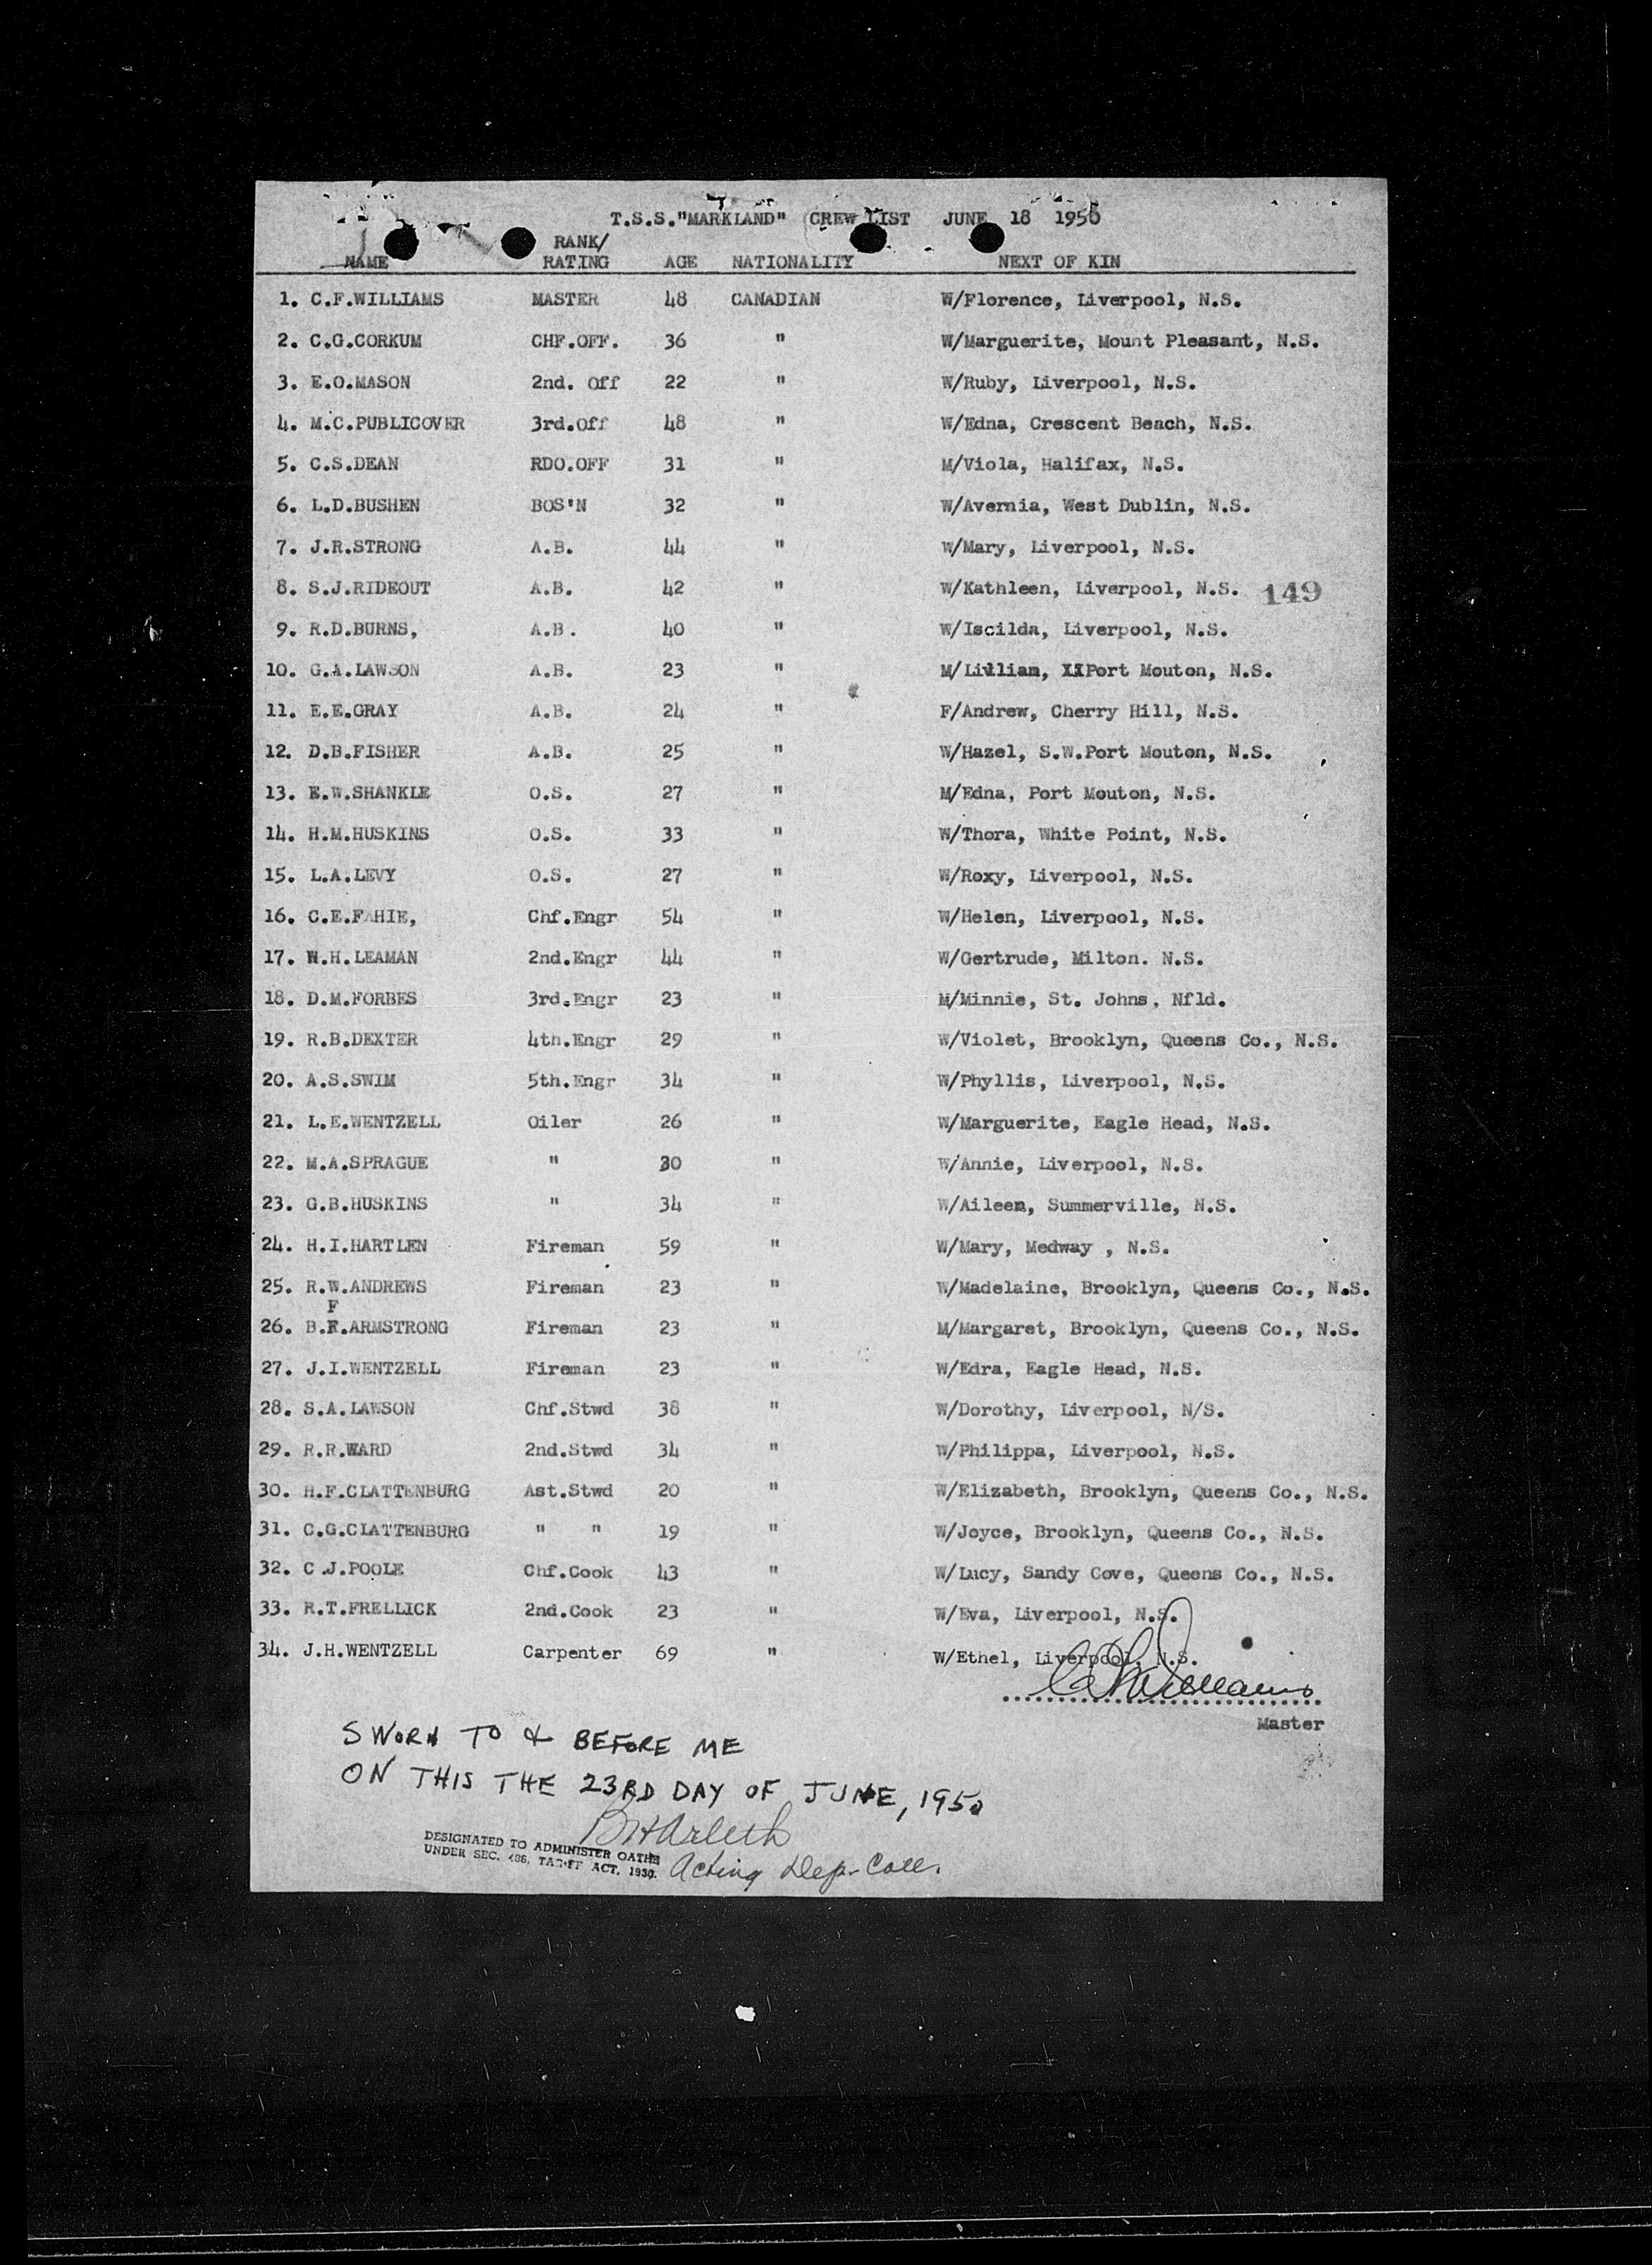 T.S.S."MARKLAND" CREW LIST JUNE 18 1950
RANK/
NAME RATING AGE NATIONALITY NEXT OF KIN
1. C.F.WILLIAMS MASTER 48 CANADIAN W/Florence, Liverpool, N.S.
2. C.G.CORKUM CHF.OFF. 36 " W/Marguerite, Mount Pleasant, N.S.
3. E.O.MASON 2nd. Off 22 " W/Ruby, Liverpool, N.S.
4. M.C.PUBLICOVER 3rd.Off 48 " W/Edna, Crescent Beach, N.S.
5. C.S.DEAN RDO.OFF 31 " M/Viola, Halifax, N.S.
6. L.D.BUSHEN BOS'N 32 " W/Avernia, West Dublin, N.S.
7. J.R.STRONG A.B. 44 " W/Mary, Liverpool, N.S.
8. S.J.RIDEOUT A.B. 42 " W/Kathleen, Liverpool, N.S. 149
9. R.D.BURNS, A.B. 40 " W/Iscilda, Liverpool, N.S.
10. G.A.LAWSON A.B. 23 " M/Lillian, XXPort Mouton, N.S.
11. E.E.GRAY A.B. 24 " F/Andrew, Cherry Hill, N.S.
12. D.B.FISHER A.B. 25 " W/Hazel, S.W.Port Mouton, N.S.
13. E.W.SHANKLE O.S. 27 " M/Edna, Port Mouton, N.S.
14. H.M.HUSKINS O.S. 33 " W/Thora, White Point, N.S.
15. L.A.LEVY O.S. 27 " W/Roxy, Liverpool, N.S.
16. C.E.FAHIE, Chf.Engr 54 " W/Helen, Liverpool, N.S.
17. W.H.LEAMAN 2nd.Engr 44 " W/Gertrude, Milton. N.S.
18. D.M.FORBES 3rd.Engr 23 " M/Minnie, St. Johns, Nfld.
19. R.B.DEXTER 4th.Engr 29 " W/Violet, Brooklyn, Queens Co., N.S.
20. A.S.SWIM 5th.Engr 34 " W/Phyllis, Liverpool, N.S.
21. L.E.WENTZELL Oiler 26 " W/Marguerite, Eagle Head, N.S.
22. M.A.SPRAGUE " 30 " W/Annie, Liverpool, N.S.
23. G.B.HUSKINS " 34 " W/Aileen, Summerville, N.S.
24. H.I.HARTLEN Fireman 59 " W/Mary, Medway , N.S.
25. R.W.ANDREWS Fireman 23 " W/Madelaine, Brooklyn, Queens Co., N.S.
F
26. B.F.ARMSTRONG Fireman 23 " M/Margaret, Brooklyn, Queens Co., N.S.
27. J.I.WENTZELL Fireman 23 " W/Edra, Eagle Head, N.S.
28. S.A.LAWSON Chf.Stwd 38 " W/Dorothy, Liverpool, N/S.
29. R.R.WARD 2nd.Stwd 34 " W/Philippa, Liverpool, N.S.
30. H.F.CLATTENBURG Ast.Stwd 20 " W/Elizabeth, Brooklyn, Queens Co., N.S.
31. C.G.CLATTENBURG " " 19 " W/Joyce, Brooklyn, Queens Co., N.S.
32. C.J.POOLE Chf.Cook 43 " W/Lucy, Sandy Cove, Queens Co., N.S.
33. R.T.FRELLICK 2nd.Cook 23 " W/Eva, Liverpool, N.S.
34. J.H.WENTZELL Carpenter 69 " W/Ethel, Liverpool, N.S.
CFWilliams
Master
SWORN TO & BEFORE ME
ON THIS THE 23RD DAY OF JUNE, 1950
DESIGNATED TO ADMINISTER OATHS
UNDER SEC. 486, TARIFF ACT, 1930.
Acting Dep. Coll.